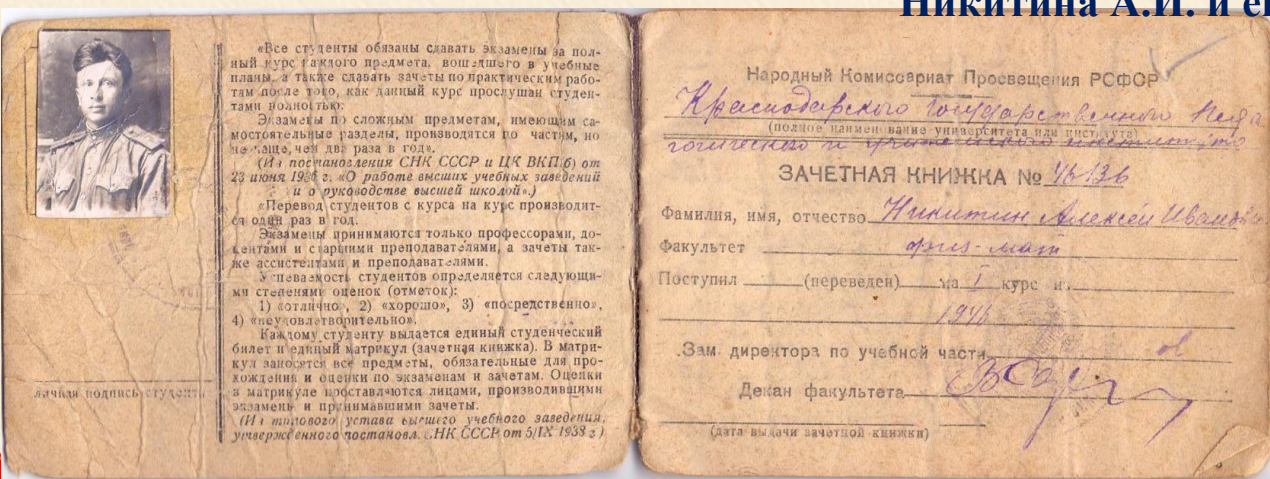 Никитина А.И. и е
«Все студенты обязаны сдавать экзамены за пол-
ный курс каждого предмета, вошедшего в учебные
планы, а также сдавать зачеты по практическим рабо-
там после того, как данный курс прослушан студен-
тами полностью.
Экзамены по сложным предметам, имеющим са-
мостоятельные разделы, производятся по частям, но
не чаще, чем два раза в год».
(Из постановления СНК СССР и ЦК ВКП(б) от
23 июня 1936 г. «О работе высших учебных заведений
и о руководстве высшей школой».)
«Перевод студентов с курса на курс производит-
ся один раз в год.
Экзамены принимаются только профессорами, до-
центами и старшими преподавателями, а зачеты так-
же ассистентами и преподавателями.
Успеваемость студентов определяется следующи-
ми степенями оценок (отметок):
1) «отлично», 2) «хорошо», 3) «посредственно»,
4) «неудовлетворительно».
Каждому студенту выдается единый студенческий
билет и единый матрикул (зачетная книжка). В матри-
кул заносятся все предметы, обязательные для про-
хождения и оценки по экзаменам и зачетам. Оценки
в матрикуле проставляются лицами, производившими
экзамены и принимавшими зачеты.
(Из типового устава высшего учебного заведения,
утвержденного постановл. СНК СССР от 5/IX 1938 г.)
личная подпись студента
Народный Комиссариат Просвещения РСФСР
Краснодарского государственного педа
(полное наименование университета или института)
гогического и учительского института
ЗАЧЕТНАЯ КНИЖКА № 46136
Фамилия, имя, отчество Никитин Алексей Иванов
Факультет физ-мат
Поступил (переведен) на I курс из
1946
Зам. директора по учебной части
Декан факультета
(дата выдачи зачетной книжки)